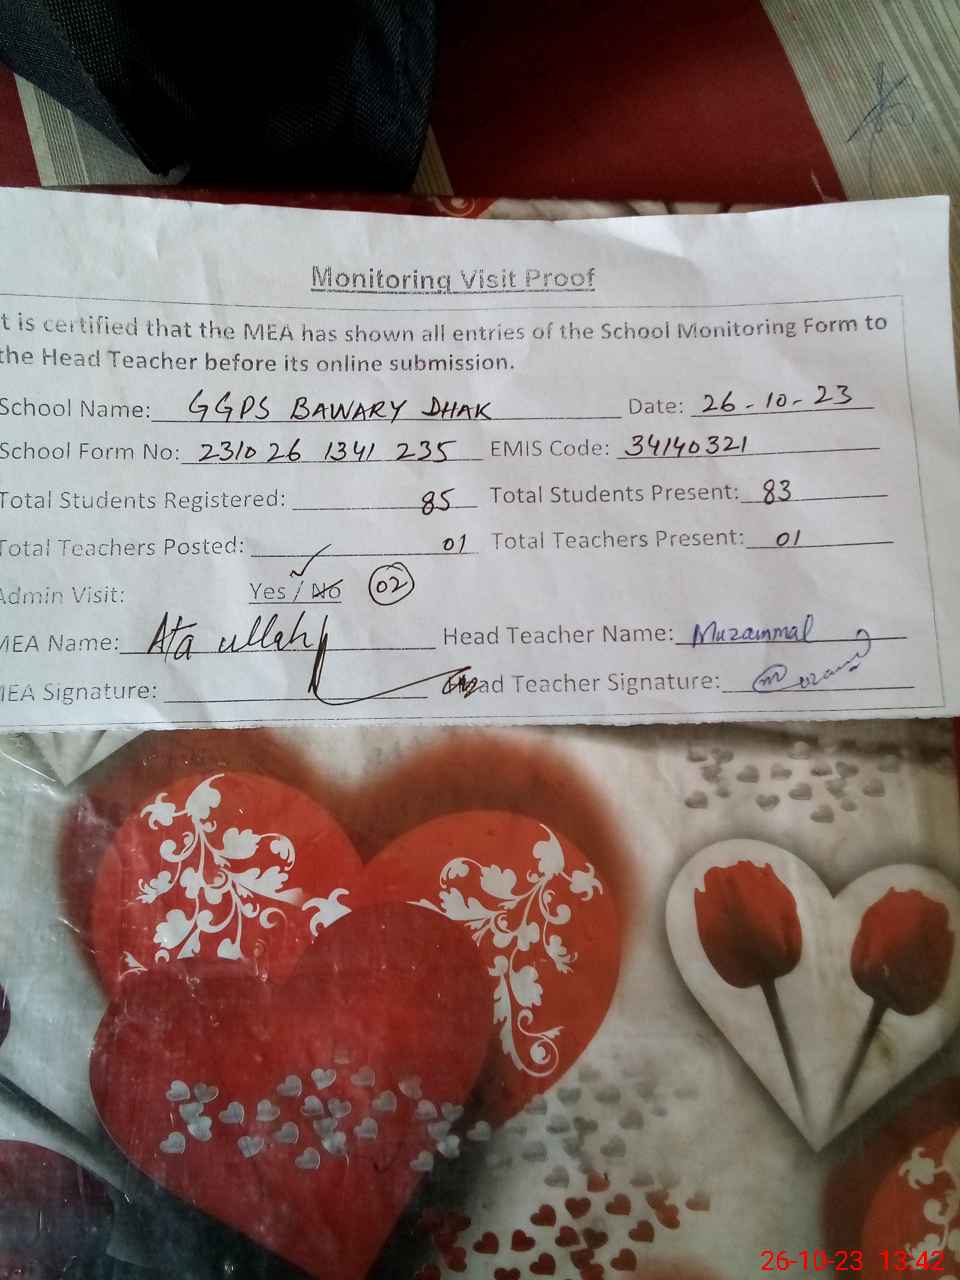 Monitoring Visit Proof
t is certified that the MEA has shown all entries of the School Monitoring Form to
the Head Teacher before its online submission.
School Name: GGPS BAWARY DHAK Date: 26-10-23
School Form No: 2310 26 1341 235 EMIS Code: 34140321
Total Students Registered: 85 Total Students Present: 83
Total Teachers Posted: 01 Total Teachers Present: 01
Admin Visit: Yes / No 02
MEA Name: Ata ullah Head Teacher Name: Muzammal
MEA Signature: Head Teacher Signature:
26-10-23 13:42